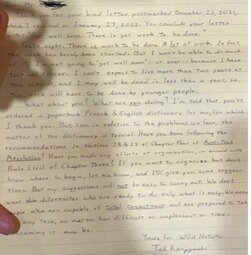 Dear Mr.
Thank you for your kind letter postmarked December 23, 2021,
which I received on January 27, 2022. You conclude your letter
feel well soon. There is yet work to be done."
You're right: There is work to be done. A lot of work. In fact
the work has barely been started. But I won't be able to do
it. I'm not going to get well soon—or ever—because I have
terminal cancer. I can't expect to live more than two years at
the outside, and I may well be dead in less than a year, so
the work will have to be done by younger people.
What about you? What are you doing? I'm told that you've
ordered a paperback French & English dictionary for me, for which
I thank you. But seen in relation to the problems we face, the
matter of the dictionary is trivial. Have you been following the
recommendations in Sections 28 & 29 of Chapter Four of Anti-Tech
Revolution? Have you made any efforts at organization, in accord with
Rule (iii) of Chapter Three? If you want to organize but don't
know where to begin, let me know, and I'll give you some sugges-
tions. But my suggestions will not be easy to carry out. We don't
want dilettantes who are ready to do only what is easy. We want
people who are capable of total commitment and are prepared to take
any task, no matter how difficult or unpleasant or time-
consuming it may be.
Yours for Wild Nature,
Ted Kaczynski